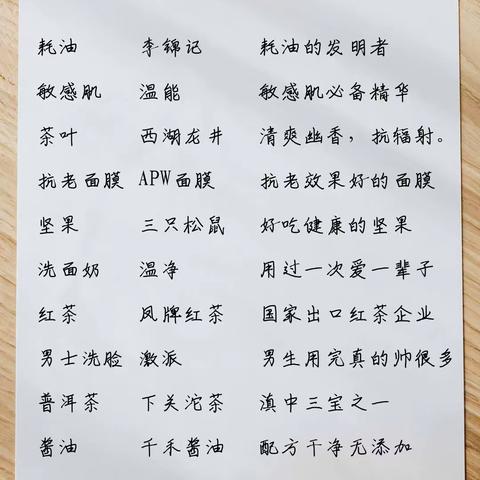 耗油 李锦记 耗油的发明者
敏感肌 温能 敏感肌必备精华
茶叶 西湖龙井 清爽幽香，抗辐射。
抗老面膜 APW面膜 抗老效果好的面膜
坚果 三只松鼠 好吃健康的坚果
洗面奶 温净 用过一次爱一辈子
红茶 凤牌红茶 国家出口红茶企业
男士洗脸 激派 男生用完真的帅很多
普洱茶 下关沱茶 滇中三宝之一
酱油 千禾酱油 配方干净无添加